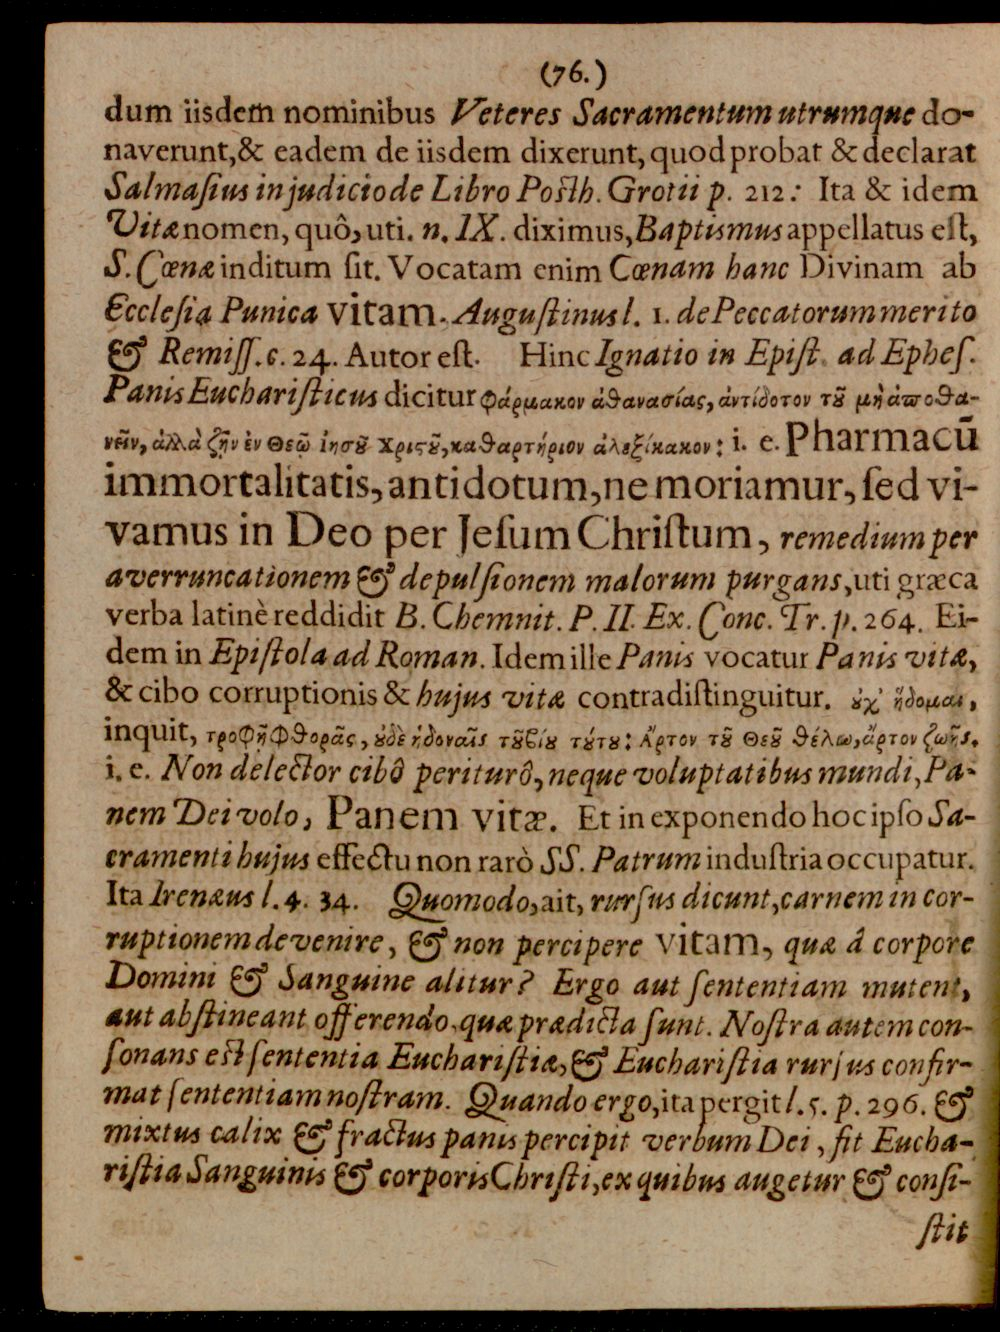 (76.)
dum iisdem nominibus Veteres Sacramentum utrumque do-
naverunt,& eadem de iisdem dixerunt, quod probat & declarat
Salmaſius in judicio de Libro Poſth. Grotii p. 212: Ita & idem
Vitæ nomen, quô, uti. n. IX. diximus, Baptismus appellatus eſt,
S. Cœnæ inditum ſit. Vocatam enim Cœnam hanc Divinam ab
Eccleſia Punica vitam. Auguſtinus l. 1. de Peccatorum merito
& Remiſſ. c. 24. Autor eſt. Hinc Ignatio in Epiſt. ad Epheſ.
Panis Euchariſticus dicitur φάρμακον ἀθανασίας, ἀντίδοτον τȣ͂ μὴ ἀποθα-
νεῖν, ἀλλὰ ζῆν ἐν Θεῷ ἰησȣ͂ Χριϛȣ͂, καθαρτήριον ἀλεξίκακον: i. e. Pharmacū
immortalitatis, antidotum, ne moriamur, ſed vi-
vamus in Deo per Jeſum Chriſtum, remedium per
averruncationem & depulſionem malorum purgans, uti græca
verba latinè reddidit B. Chemnit. P. II. Ex. Conc. Tr. p. 264. Ei-
dem in Epiſtola ad Roman. Idem ille Panis vocatur Panis vitæ,
& cibo corruptionis & hujus vitæ contradiſtinguitur. ȣ̓χ' ἥδομαι,
inquit, τροφῇ φθορᾶς, ȣ̓δὲ ἡδοναῖς τȣ͂ βίȣ τȣ́τȣ: Ἄρτον τȣ͂ Θεȣ͂ θέλω, ἄρτον ζωῆς.
i. e. Non delector cibô periturô, neque voluptatibus mundi, Pa-
nem Dei volo, Panem vitæ. Et in exponendo hoc ipſo Sa-
cramenti hujus effectu non rarò SS. Patrum induſtria occupatur.
Ita Irenæus l. 4. 34. Quomodo, ait, rurſus dicunt, carnem in cor-
ruptionem devenire, & non percipere vitam, quæ â corpore
Domini & Sanguine alitur? Ergo aut ſententiam mutent,
aut abſtineant offerendo, quæ prædicta ſunt. Noſtra autem con-
ſonans eſt ſententia Euchariſtiæ, & Euchariſtia rurſus confir-
mat ſententiam noſtram. Quando ergo, ita pergit l. 5. p. 296. &
mixtus calix & fractus panis percipit verbum Dei, fit Eucha-
riſtia Sanguinis & corporis Chriſti, ex quibus augetur & conſi-
ſtit